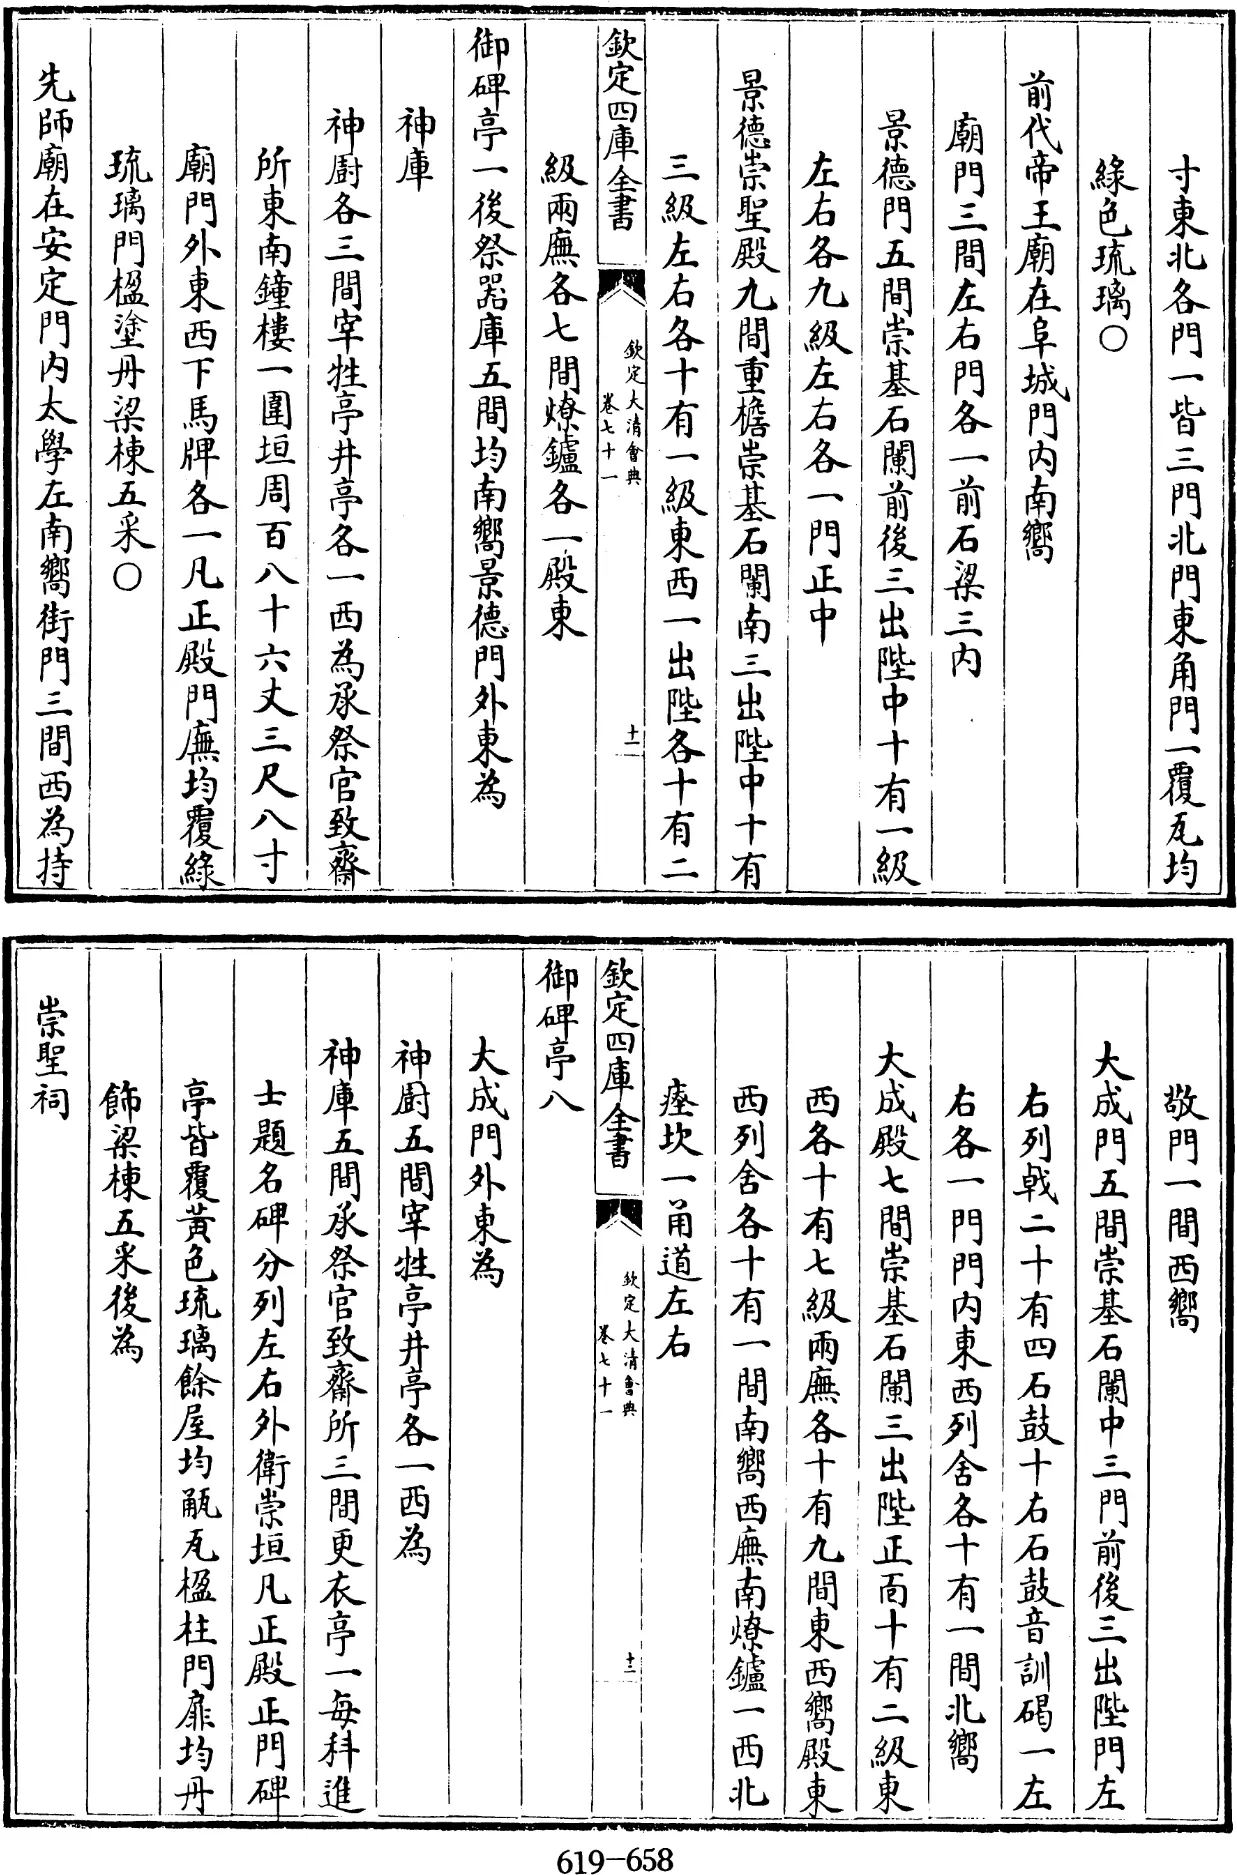 寸東北各門一皆三門北門東角門一覆瓦均
綠色琉璃○
前代帝王廟在阜城門内南嚮
廟門三間左右門各一前石梁三内
景德門五間崇基石闌前後三出陛中十有一級
左右各九級左右各一門正中
景德崇聖殿九間重檐崇基石闌南三出陛中十有
三級左右各十有一級東西一出陛各十有二
欽定四庫全書
欽定大清會典
卷七十一
十一
級兩廡各七間燎鑪各一殿東
御碑亭一後祭器庫五間均南嚮景德門外東為
神庫
神廚各三間宰牲亭井亭各一西為承祭官致齋
所東南鐘樓一圍垣周百八十六丈三尺八寸
廟門外東西下馬牌各一凡正殿門廡均覆綠
琉璃門楹塗丹梁棟五采○
先師廟在安定門内太學左南嚮街門三間西為持
敬門一間西嚮
大成門五間崇基石闌中三門前後三出陛門左
右列戟二十有四石鼓十右石鼓音訓碣一左
右各一門門内東西列舍各十有一間北嚮
大成殿七間崇基石闌三出陛正面十有二級東
西各十有七級兩廡各十有九間東西嚮殿東
西列舍各十有一間南嚮西廡南燎鑪一西北
瘞坎一甬道左右
欽定四庫全書
欽定大清會典
卷七十一
十二
御碑亭八
大成門外東為
神廚五間宰牲亭井亭各一西為
神庫五間承祭官致齋所三間更衣亭一每科進
士題名碑分列左右外衛崇垣凡正殿正門碑
亭皆覆黃色琉璃餘屋均甋瓦楹柱門扉均丹
飾梁棟五采後為
崇聖祠
619-658